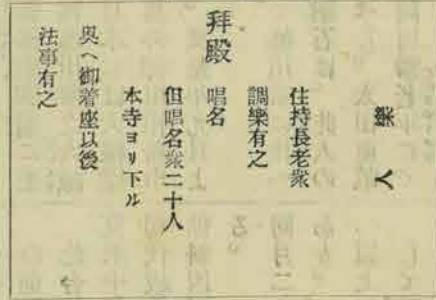 樂人
住持長老衆
調樂有之
拜殿 唱名
但唱名衆二十人
本寺ヨリ下ル
奥ヘ御着座以後
法事有之